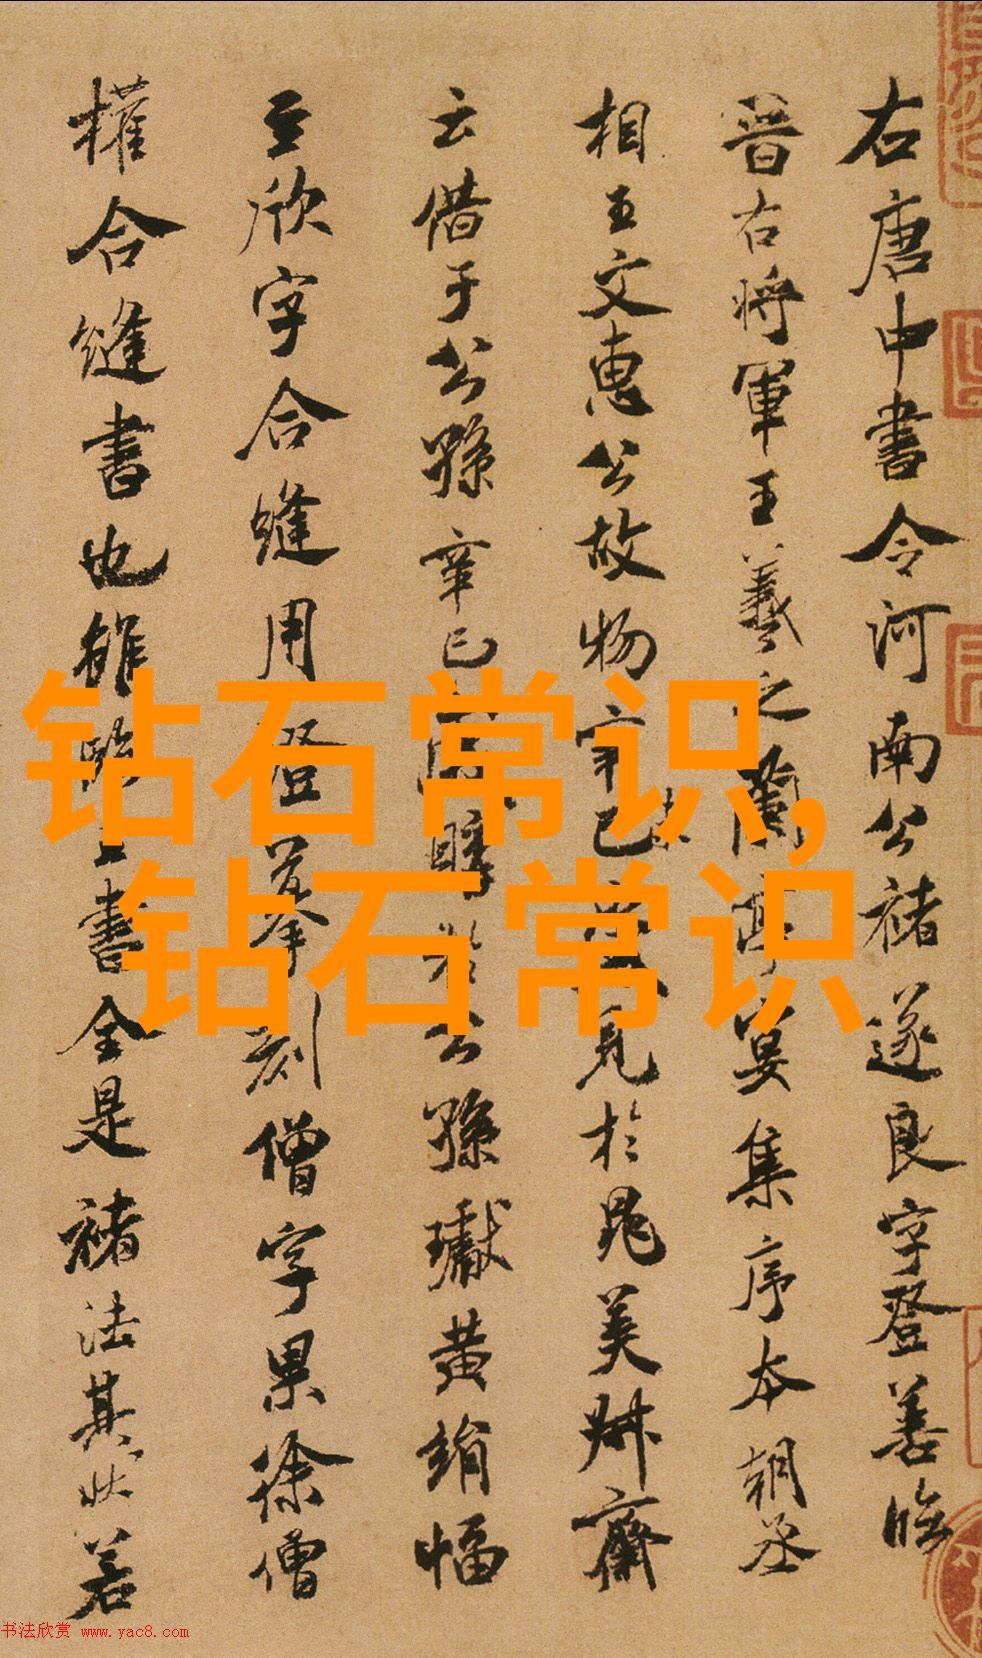 右唐中書令河南公褚遂良字登善臨
晉右將軍王羲之蘭亭宴集序本朝丞
相王文惠公故物辛巳見於晁美叔齋
云借于公孫辛巳於公孫瓛黃絹幅
至欣字合縫用證摹刻僧字果徐僧
權合縫書也雖臨王書全是褚法其狀若
钻石常识,
钻石常识
书法欣赏 www.yac8.com